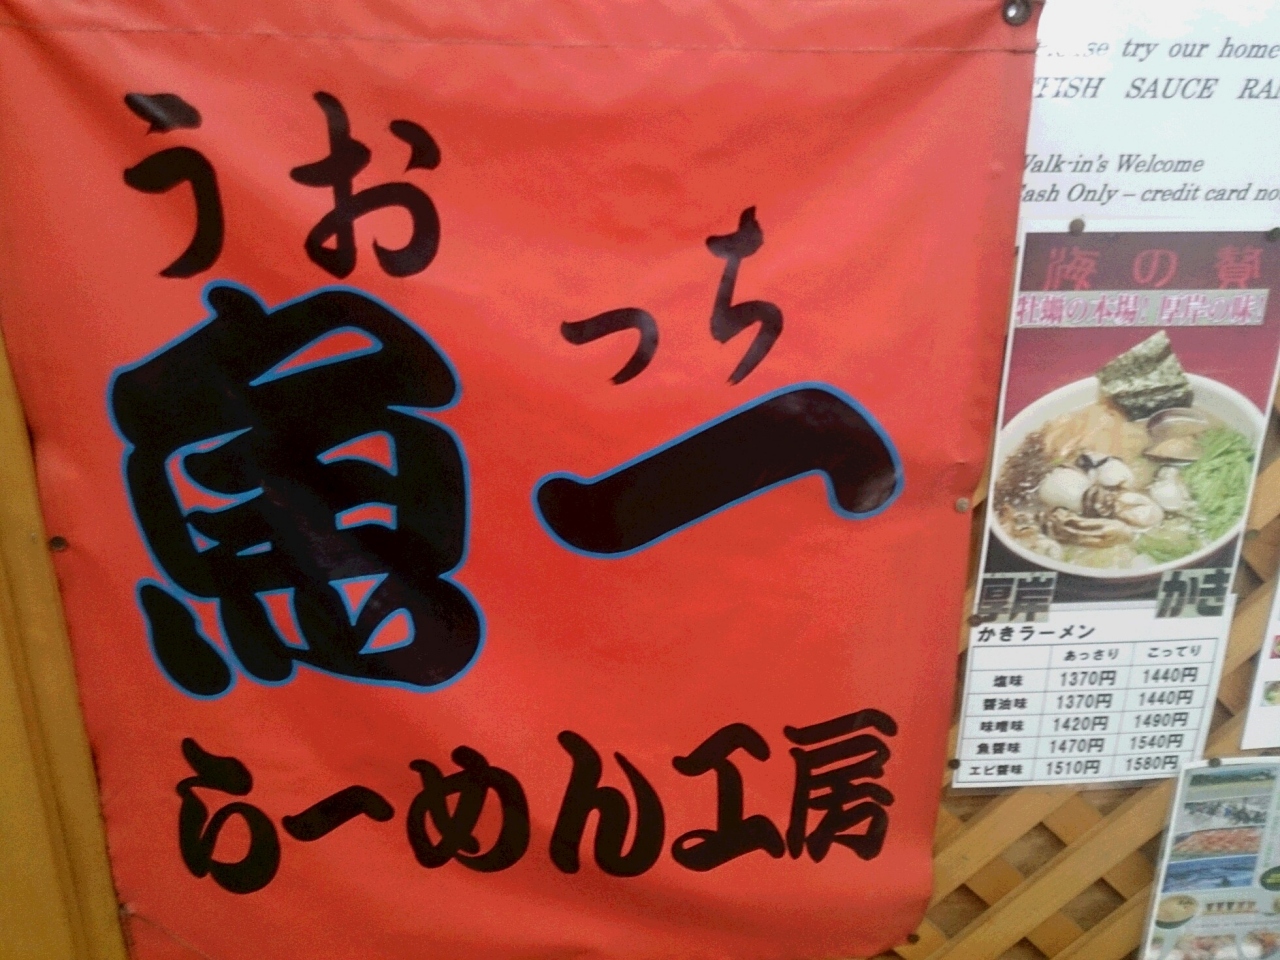 うお
っち
魚一
らーめん工房
try our home
FISH SAUCE
Walk-in's Welcome
Cash Only – credit card
海の贅
牡蠣の本場! 厚岸の味!
厚岸 かき
かきラーメン
あっさり こってり
塩味 1370円 1440円
醤油味 1370円 1440円
味噌味 1420円 1490円
魚醤味 1470円 1540円
エビ醤味 1510円 1580円